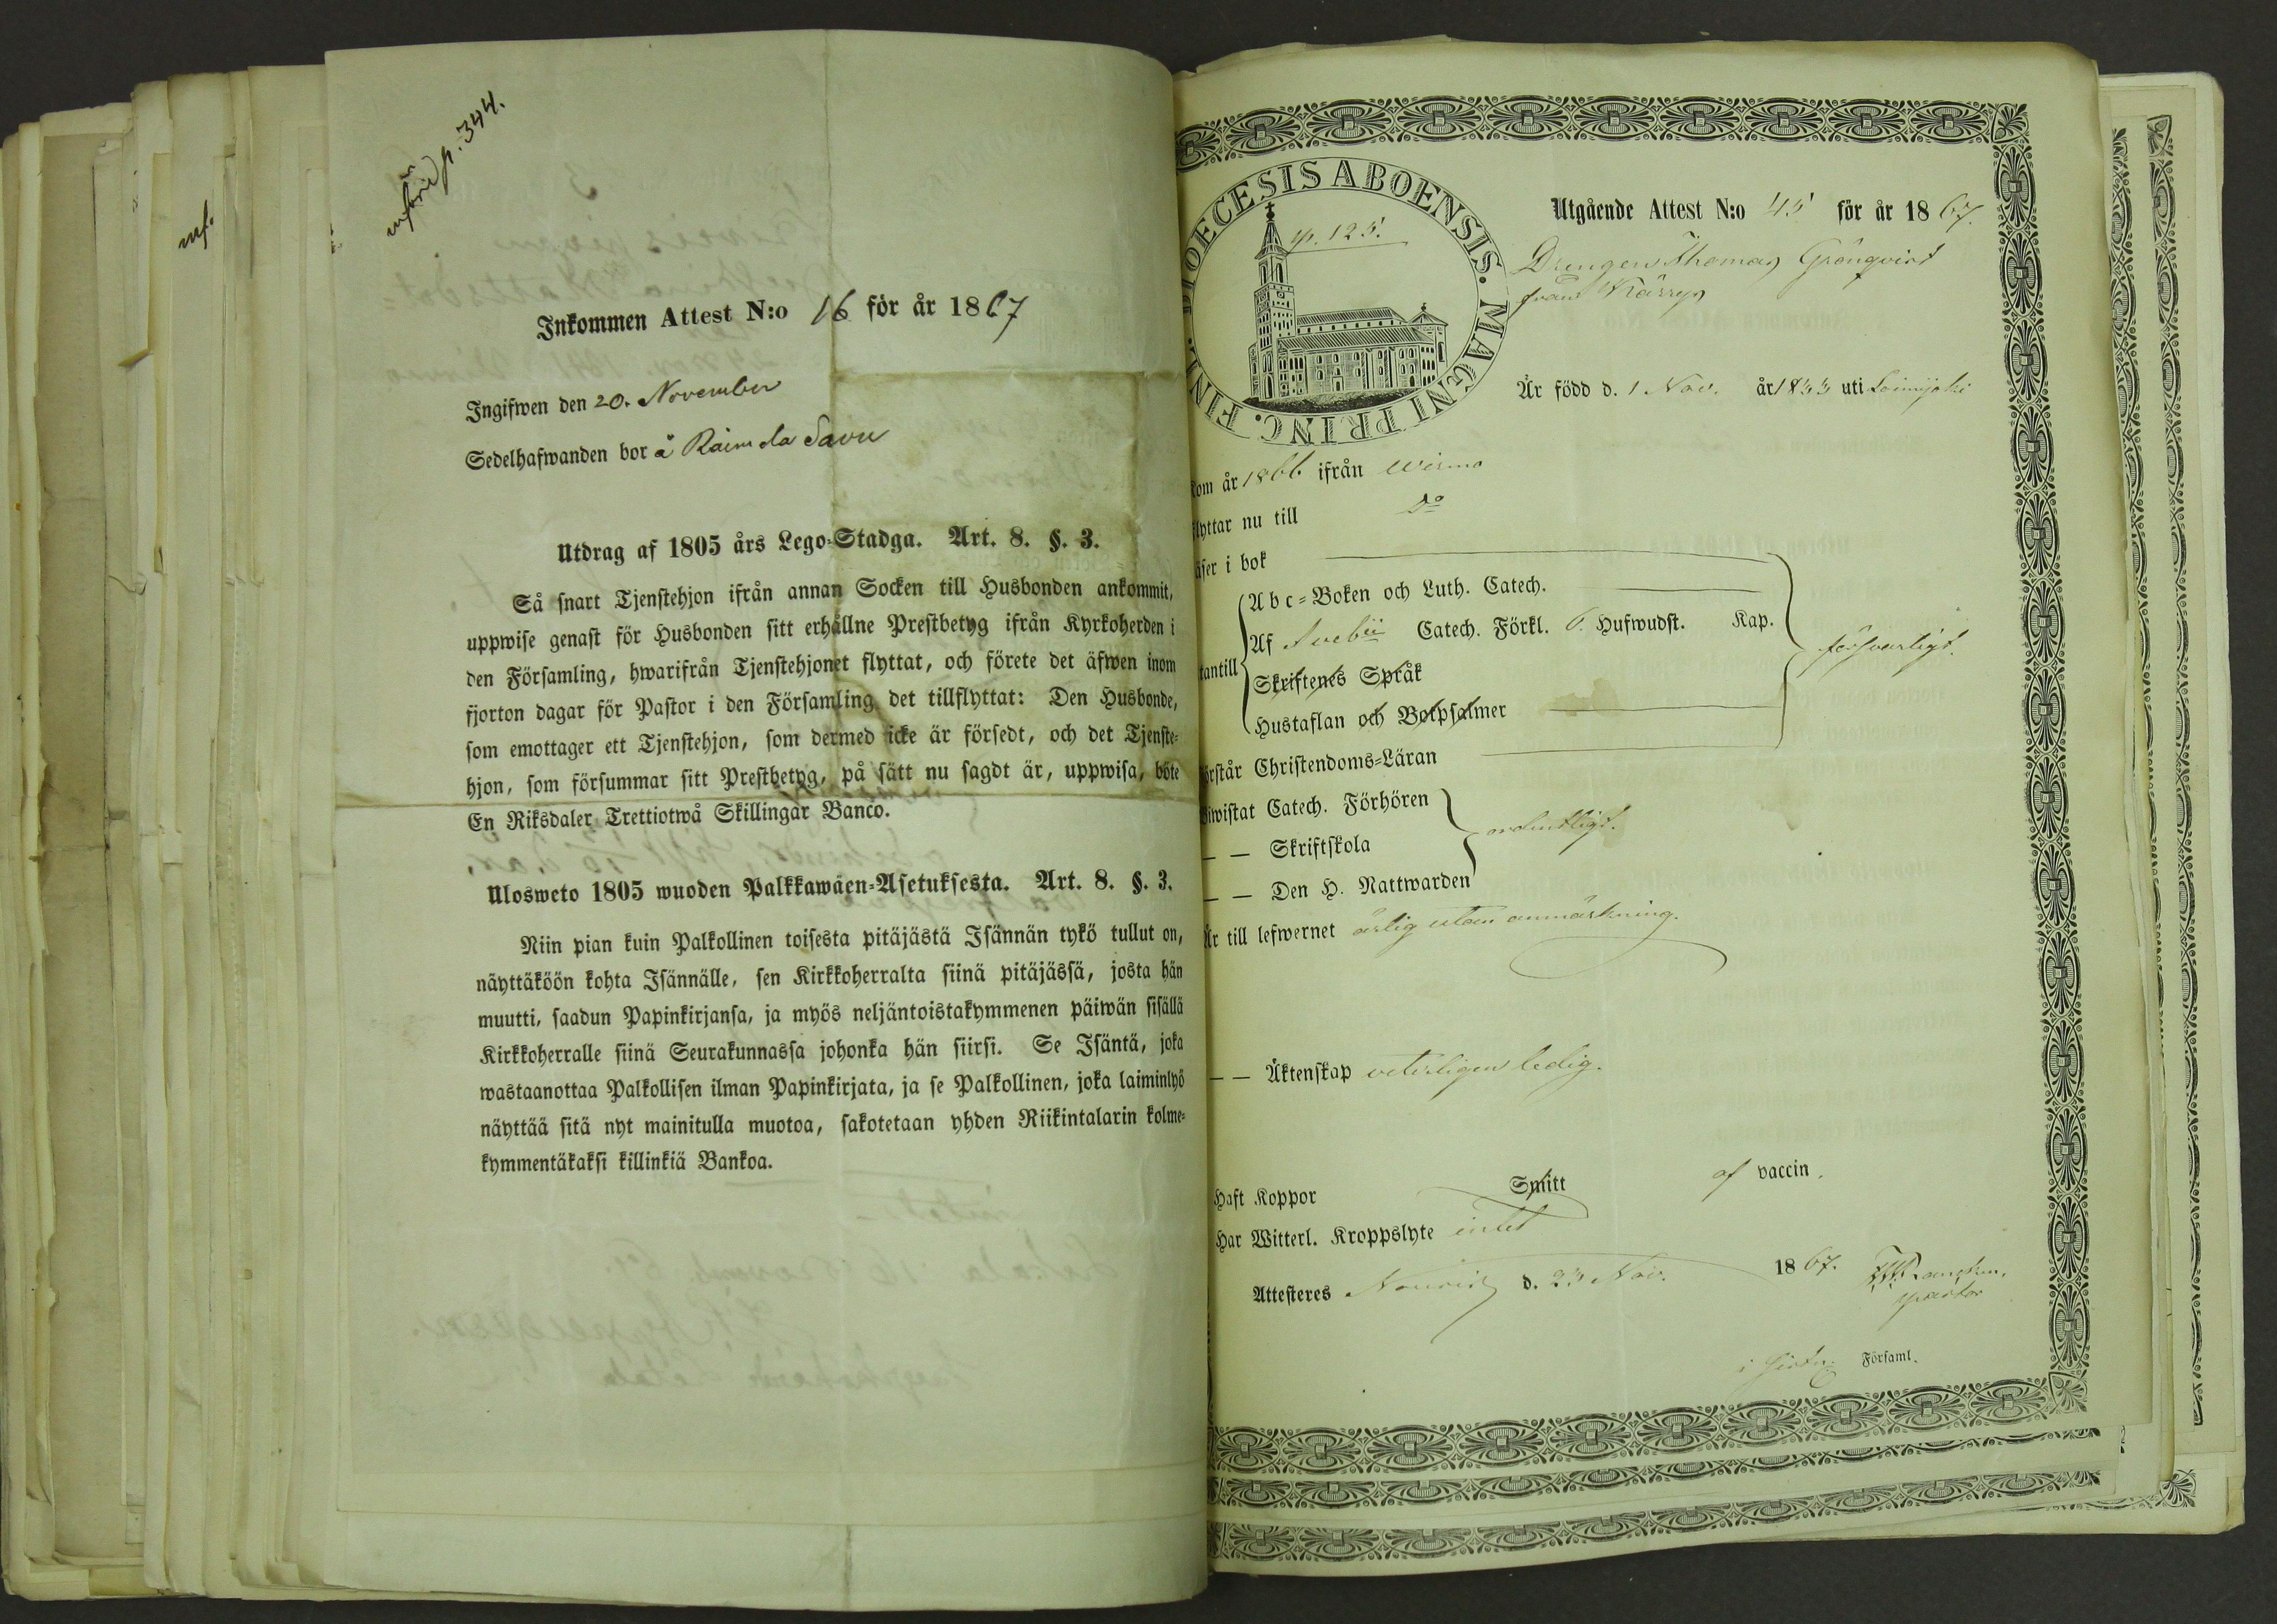 införd p. 344.
Inkommen Attest N:o 16 för år 1867
Ingifwen den 20. November
Sedelhafwanden bor å Raimela Savu
Utdrag af 1805 års Lego-Stadga. Art. 8. §. 3.
Så snart Tjenstehjon ifrån annan Socken till Husbonden ankommit,
uppwise genast för Husbonden sitt erhållne Prestbetyg ifrån Kyrkoherden i
den Församling, hwarifrån Tjenstehjonet flyttat, och förete det äfwen inom
fjorton dagar för Pastor i den Församling det tillflyttat: Den Husbonde,
som emottager ett Tjenstehjon, som dermed icke är försedt, och det Tjenste-
hjon, som försummar sitt Prestbetyg, på sätt nu sagdt är, uppwisa, böte
En Riksdaler Trettiotwå Skillingar Banco.
Ulosweto 1805 wuoden Palkkawäen-Asetuksesta. Art. 8. §. 3.
Niin pian kuin Palkollinen toisesta pitäjästä Isännän tykö tullut on,
näyttäköön kohta Isännälle, sen Kirkkoherralta siinä pitäjässä, josta hän
muutti, saadun Papinkirjansa, ja myös neljäntoistakymmenen päiwän sisällä
Kirkkoherralle siinä Seurakunnassa johonka hän siirsi. Se Isäntä, joka
wastaanottaa Palkollisen ilman Papinkirjata, ja se Palkollinen, joka laiminlyö
näyttää sitä nyt mainitulla muotoa, sakotetaan yhden Riikintalarin kolme-
kymmentäkaksi killinkiä Bankoa.
inf.
DIOECESIS ABOENSIS. MAGNI PRINC. FINL.
p. 125.
Utgående Attest N:o 45 för år 1867.
Drengen Thomas Grönqvist
från Kärrys
Är född d. 1 Nov. år 1833 uti Loimijoki
Kom år 1866 ifrån Wirmo
flyttar nu till Do
äser i bok
Abc-Boken och Luth. Catech.
Af Svebii Catech. Förkl. 6. Hufwudst. Kap.
tantill
Skriftenes Språk
försvarligt.
Hustaflan och Botpsalmer
örstår Christendoms-Läran
Biwistat Catech. Förhören
— — Skriftskola ordentligt.
— — Den H. Nattwarden
Är till lefwernet ärlig utan anmärkning.
— — Äktenskap veterligen ledig.
Haft Koppor Smitt af vaccin.
Har Witterl. Kroppslyte intet
Attesteres Nousis d. 23 Nov. 1867.
pastor
i Församl.